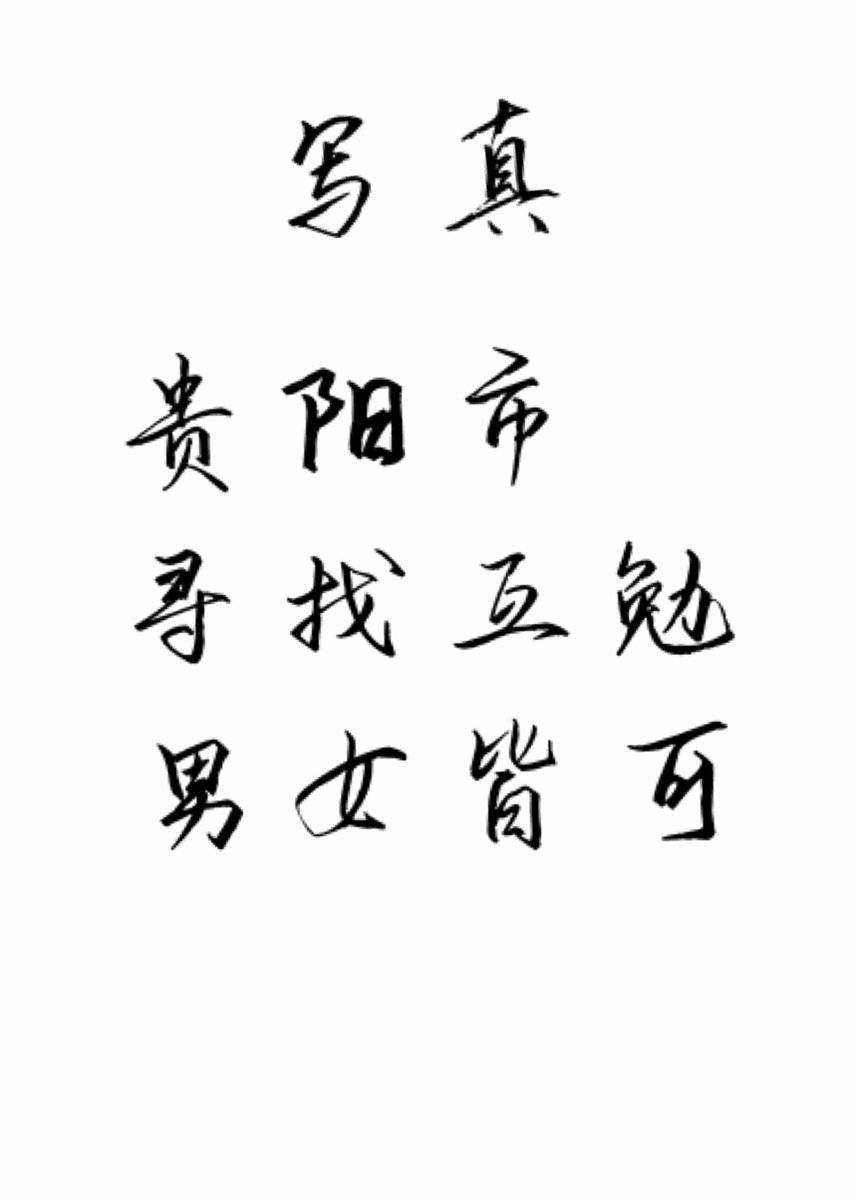 写真
贵阳市
寻找互勉
男女皆可